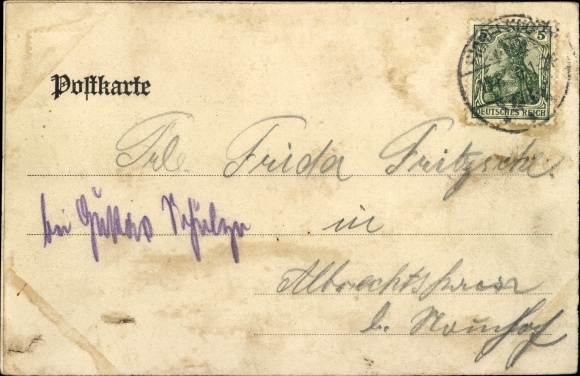 Postkarte
5
DEUTSCHES REICH
Frl. Frida Fritzsche.
bei Gustav Schulze
in
Albrechtshain
b. Naunhof